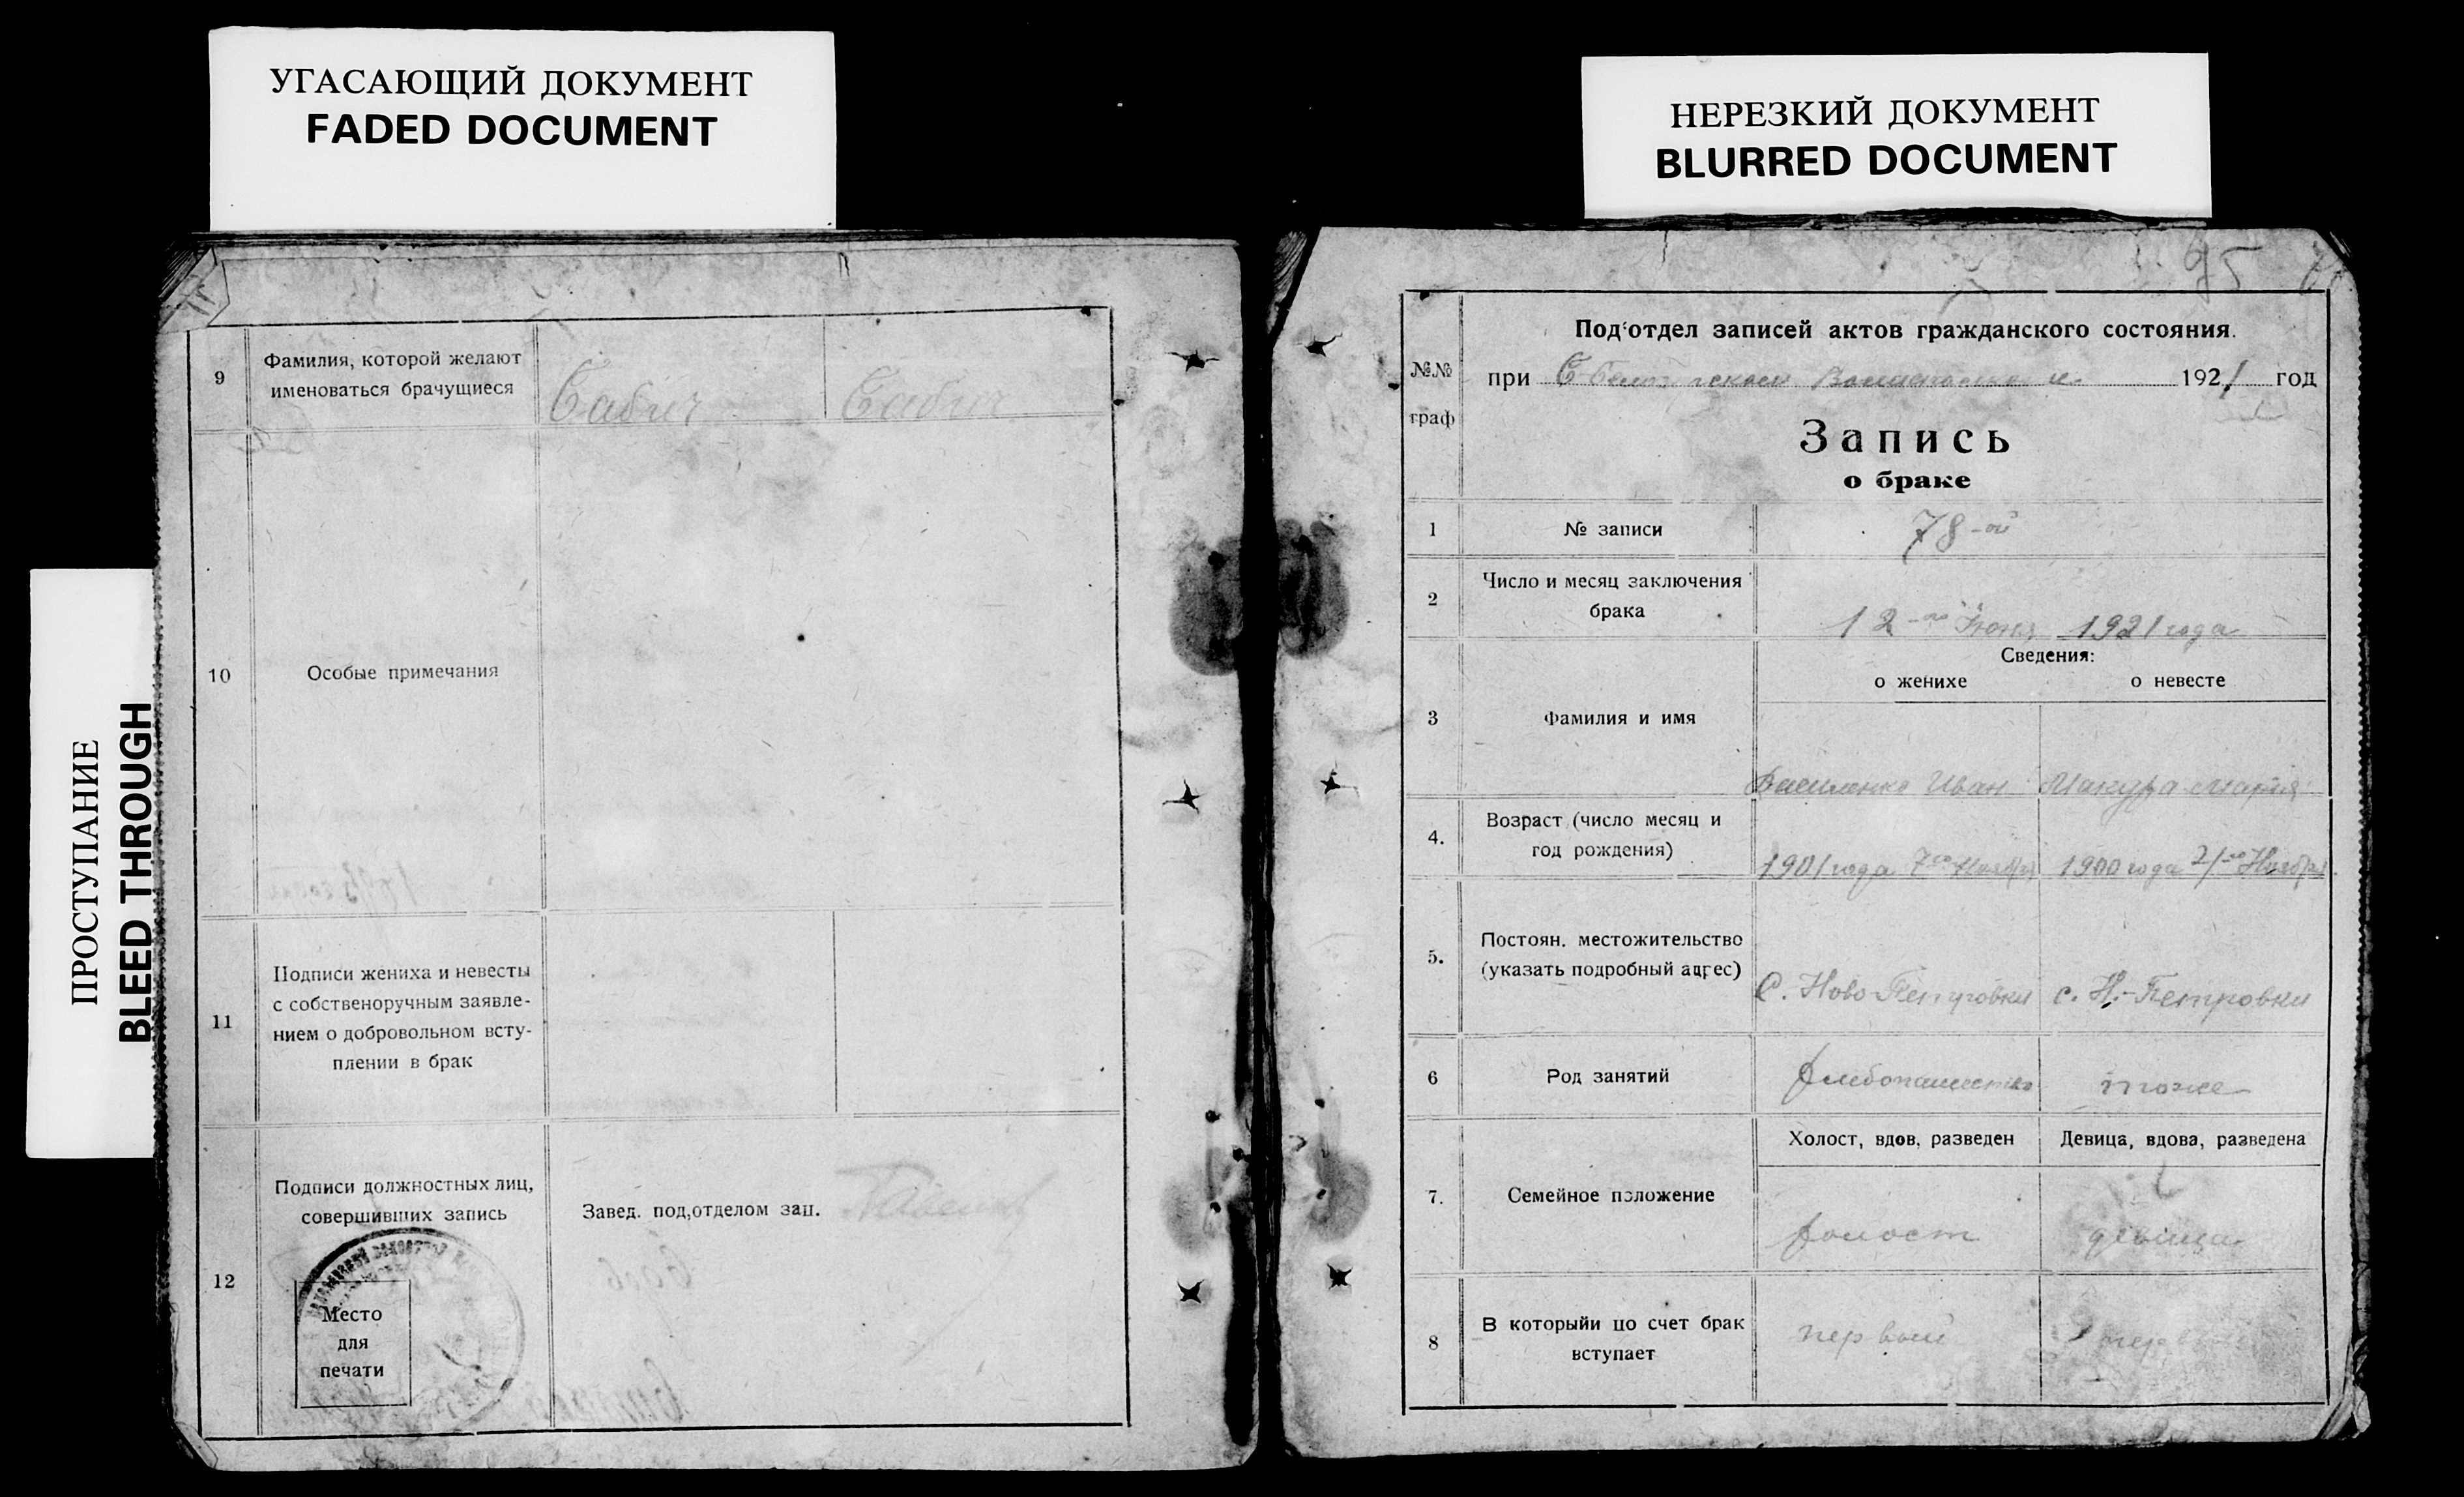 УГАСАЮЩИЙ ДОКУМЕНТ
FADED DOCUMENT
НЕРЕЗКИЙ ДОКУМЕНТ
BLURRED DOCUMENT
ПРОСТУПАНИЕ
BLEED THROUGH
9
Фамилия, которой желают
именоваться брачущиеся
Бабич
Бабич
10
Особые примечания
11
Подписи жениха и невесты
с собственоручным заявле-
нием о добровольном всту-
плении в брак
12
Подписи должностных лиц,
совершивших запись
Завед. под,отделом зап.
Место
для
печати
95
№№
граф
Под'отдел записей актов гражданского состояния.
при 1921 год
Запись
о браке
1
№ записи
78-ой
2
Число и месяц заключения
брака
12-го Июня 1921 года
Сведения:
о женихе
о невесте
3
Фамилия и имя
Василенко Иван
Макура Мария
4.
Возраст (число месяц и
год рождения)
1901 года 7го Ноября
1900 года 21-го Ноября
5.
Постоян. местожительство
(указать подробный адрес)
С. Ново-Петровки
с. Н.-Петровки
6
Род занятий
Хлебопашество
тоже
7.
Семейное положение
Холост, вдов, разведен
Девица, вдова, разведена
холост
девица
8
В которыйи по счет брак
вступает
первый
первый